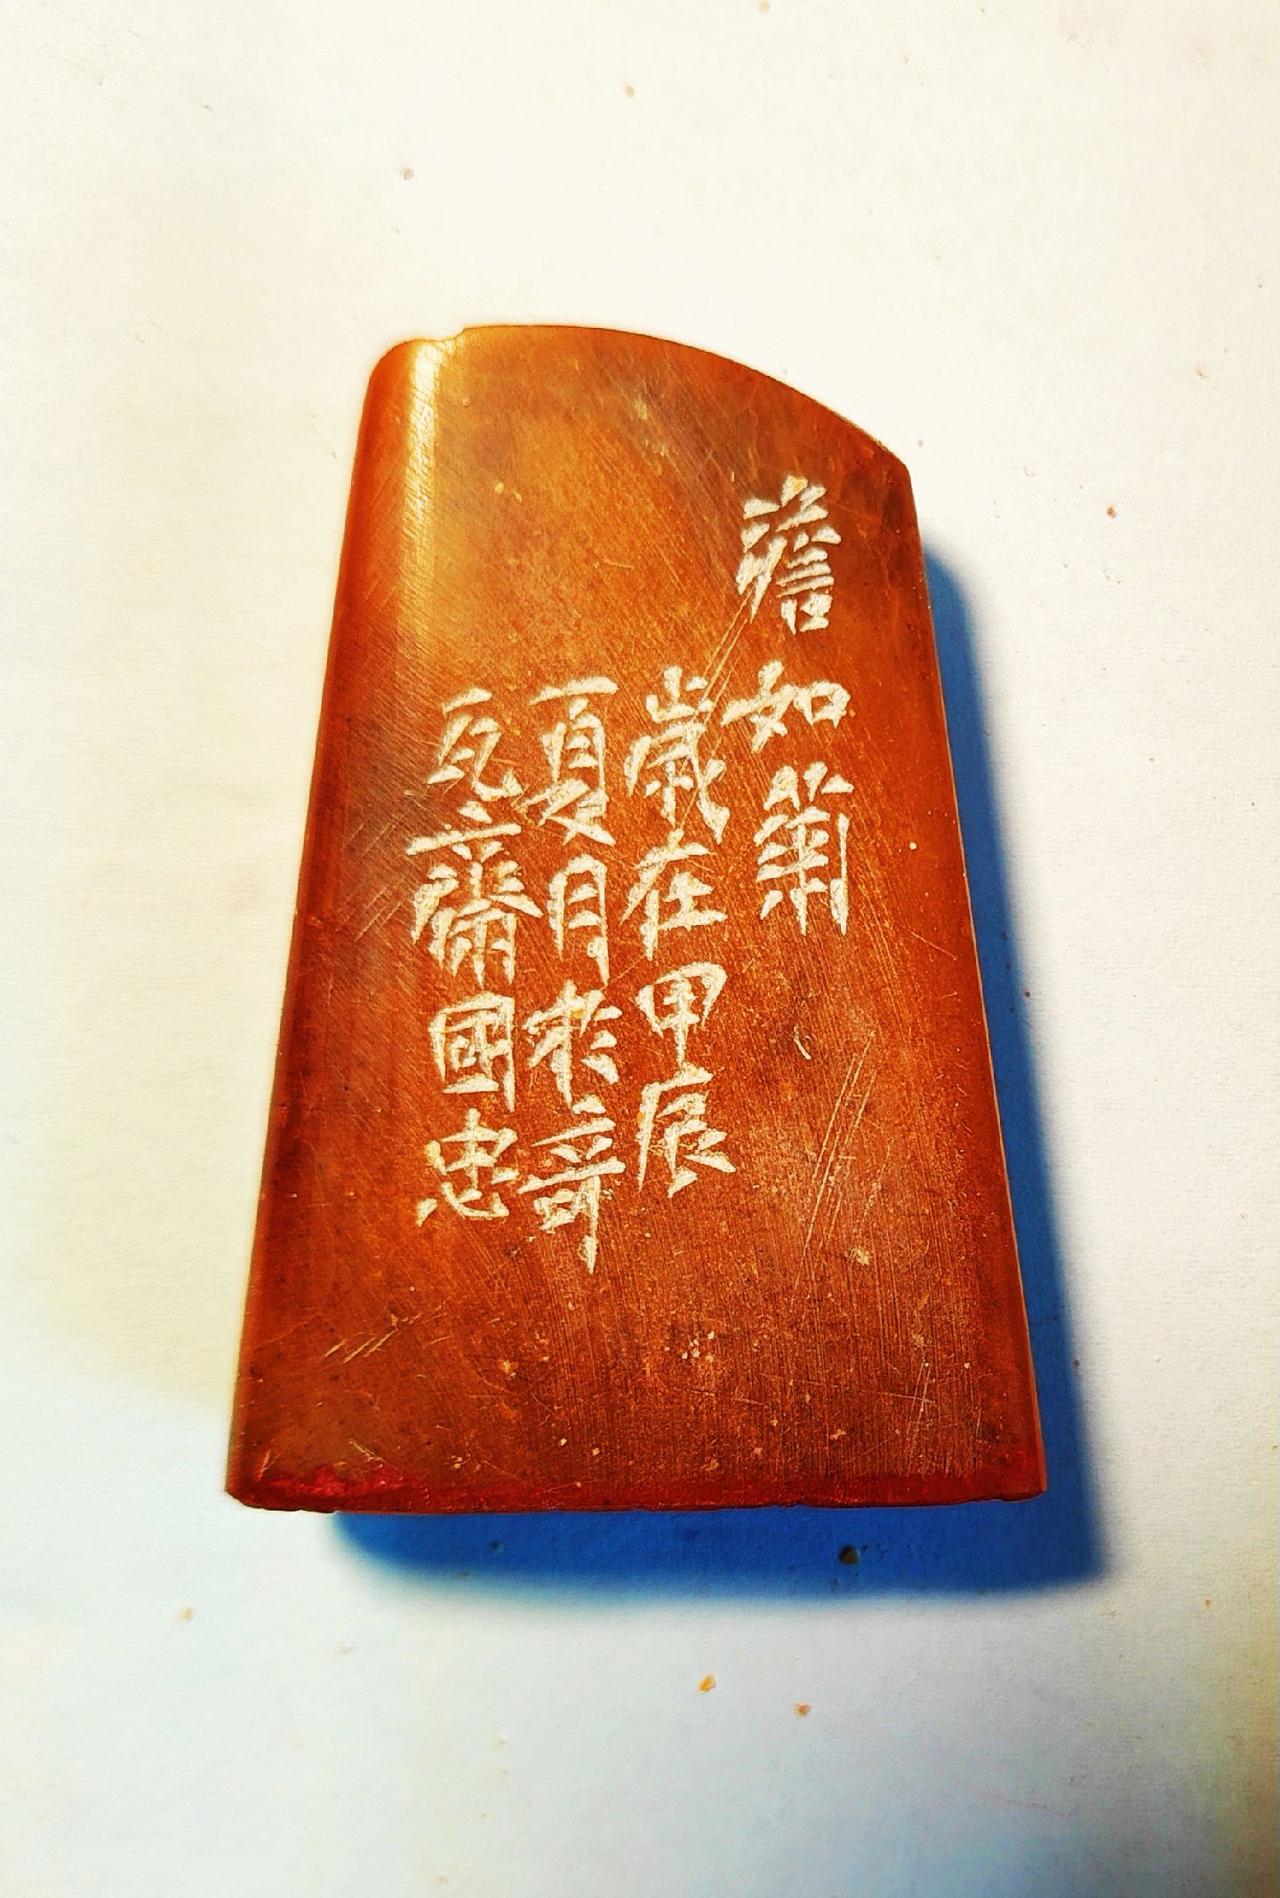 澹如菊
歲在甲辰
夏月於竒
瓦齋國忠